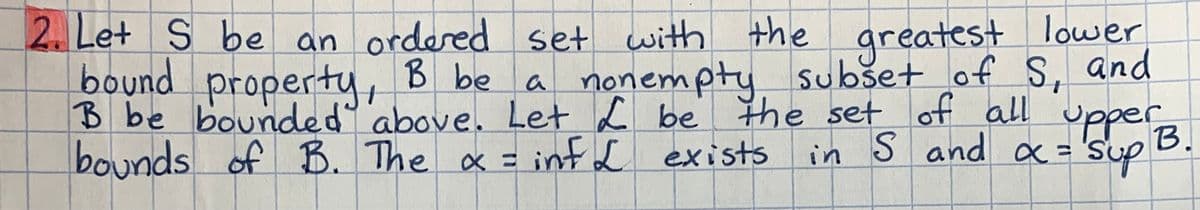 2. Let S be an ordered set with the greatest lower
bound property, B be a nonempty subset of S, and
B be bounded above. Let L be the set of all upper
bounds of B. The α = inf L exists in S and α = sup B.